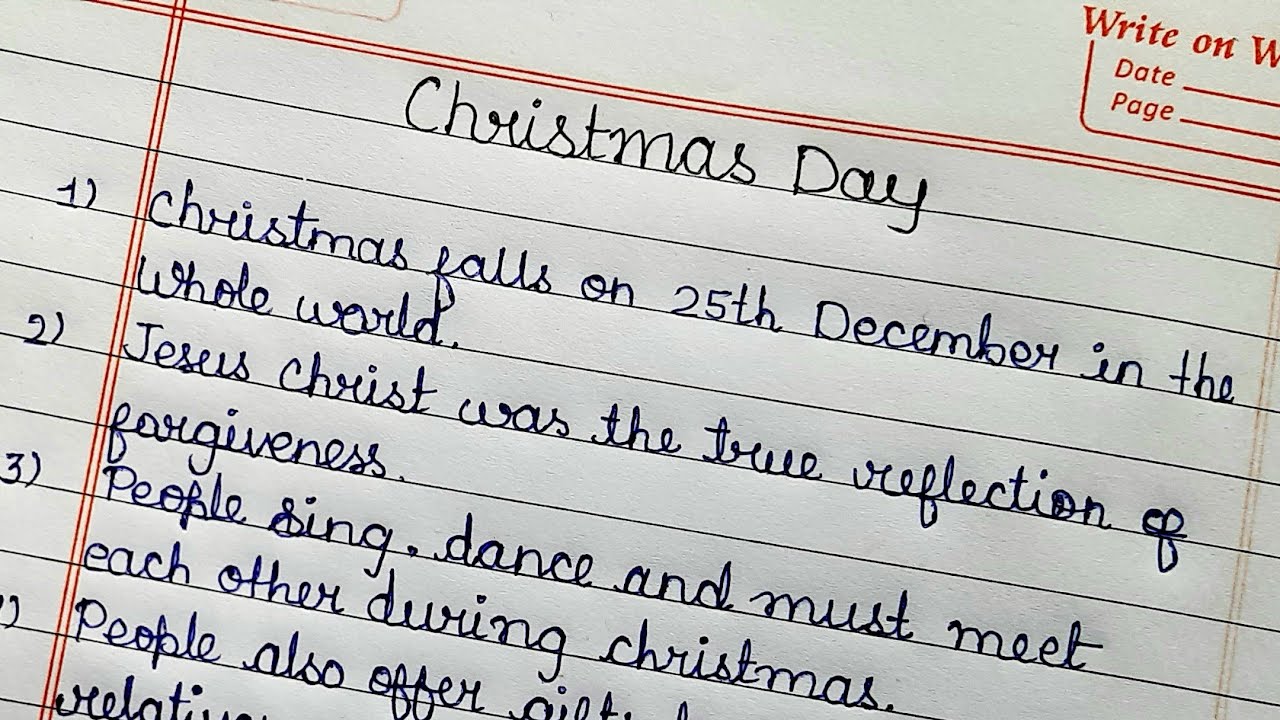 Write on W
Date
Page
Christmas Day
1) Christmas falls on 25th December in the
whole world.
2) Jesus Christ was the true reflection of
forgiveness.
3) People sing, dance and must meet
each other during christmas.
People also offer